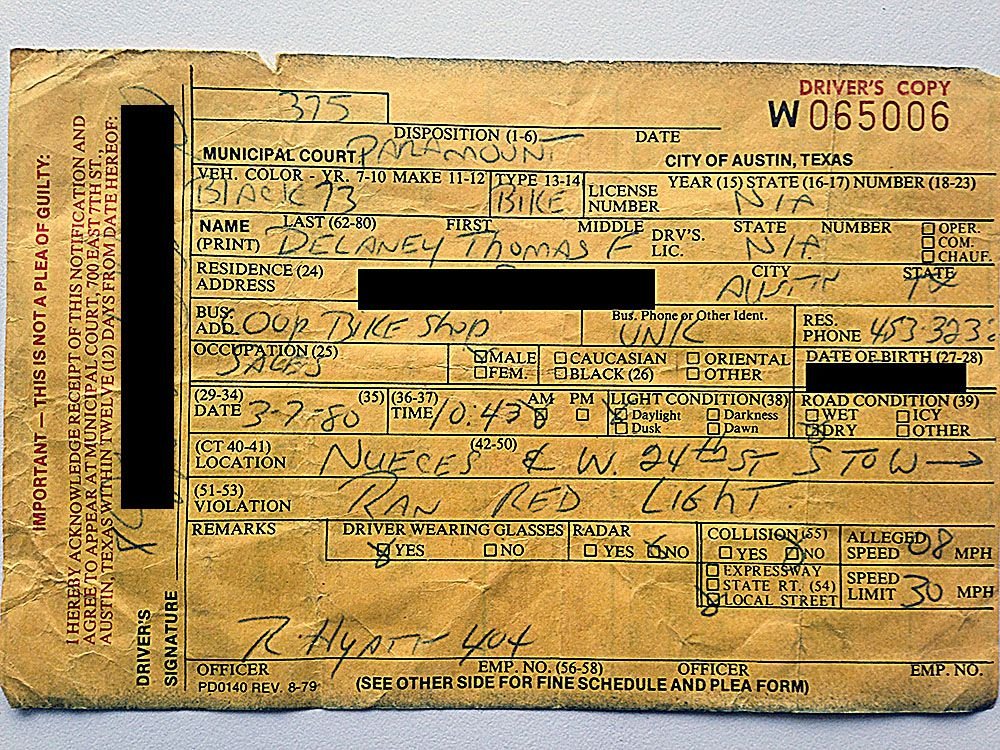 DRIVER'S COPY
W065006
375
DISPOSITION (1-6) DATE
MUNICIPAL COURT PARAMOUNT CITY OF AUSTIN, TEXAS
VEH. COLOR - YR. 7-10 MAKE 11-12 TYPE 13-14 LICENSE NUMBER YEAR (15) STATE (16-17) NUMBER (18-23)
BLACK 73 BIKE N/A
NAME (PRINT) LAST (62-80) FIRST MIDDLE DRV'S. LIC. STATE NUMBER OPER. COM. CHAUF.
DELANEY THOMAS F N/A
RESIDENCE (24) ADDRESS CITY STATE
AUSTIN TX
BUS. ADD. OUR BIKE SHOP Bus. Phone or Other Ident. UNK RES. PHONE 453-3232
OCCUPATION (25) MALE CAUCASIAN ORIENTAL DATE OF BIRTH (27-28)
SALES FEM. BLACK (26) OTHER
(29-34) (35) (36-37) AM PM LIGHT CONDITION (38) ROAD CONDITION (39)
DATE 3-7-80 TIME 10:43 Daylight Darkness WET ICY
Dusk Dawn DRY OTHER
(CT 40-41) (42-50)
LOCATION NUECES & W. 24th ST S TO W →
(51-53)
VIOLATION RAN RED LIGHT.
REMARKS DRIVER WEARING GLASSES RADAR COLLISION (55) ALLEGED SPEED 08 MPH
YES NO YES NO YES NO
EXPRESSWAY
STATE RT. (54) SPEED LIMIT 30 MPH
LOCAL STREET
R HYATT 404
OFFICER EMP. NO. (56-58) OFFICER EMP. NO.
PD0140 REV. 8-79 (SEE OTHER SIDE FOR FINE SCHEDULE AND PLEA FORM)
IMPORTANT — THIS IS NOT A PLEA OF GUILTY:
I HEREBY ACKNOWLEDGE RECEIPT OF THIS NOTIFICATION AND
AGREE TO APPEAR AT MUNICIPAL COURT, 700 EAST 7TH ST.,
AUSTIN, TEXAS WITHIN TWELVE (12) DAYS FROM DATE HEREOF:
DRIVER'S
SIGNATURE